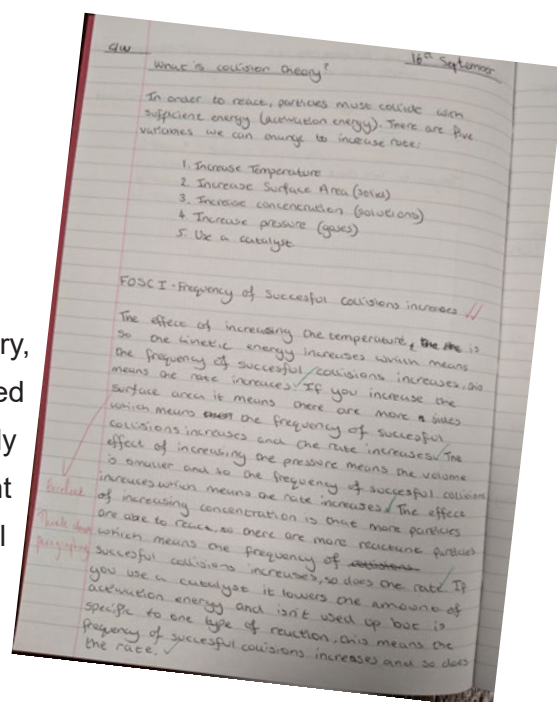 C/W
16th September
What is collision theory?
In order to react, particles must collide with
sufficient energy (activation energy). There are five
variables we can change to increase rate:
1. Increase Temperature
2. Increase Surface Area (solid)
3. Increase concentration (solutions)
4. Increase pressure (gases)
5. Use a catalyst
FOSCI - Frequency of Succesful collisions increases
The effect of increasing the temperature, is
so the kinetic energy increases which means
the frequency of succesful collisions increases, this
means the rate increases. If you increase the
surface area it means there are more sides
which means the frequency of succesful
collisions increases and the rate increases. The
effect of increasing the pressure means the volume
is smaller and so the frequency of succesful collisions
increases which means the rate increases. The effect
of increasing concentration is that more particles
are able to react, so there are more reactant particles
which means the frequency of
succesful collisions increases, so does the rate. If
you use a catalyst it lowers the amount of
activation energy and isn't used up but is
specific to one type of reaction, this means the
frequency of succesful collisions increases and so does
the rate.
Excellent
Think about
paragraphing
ry,
ed
ly
nt
l